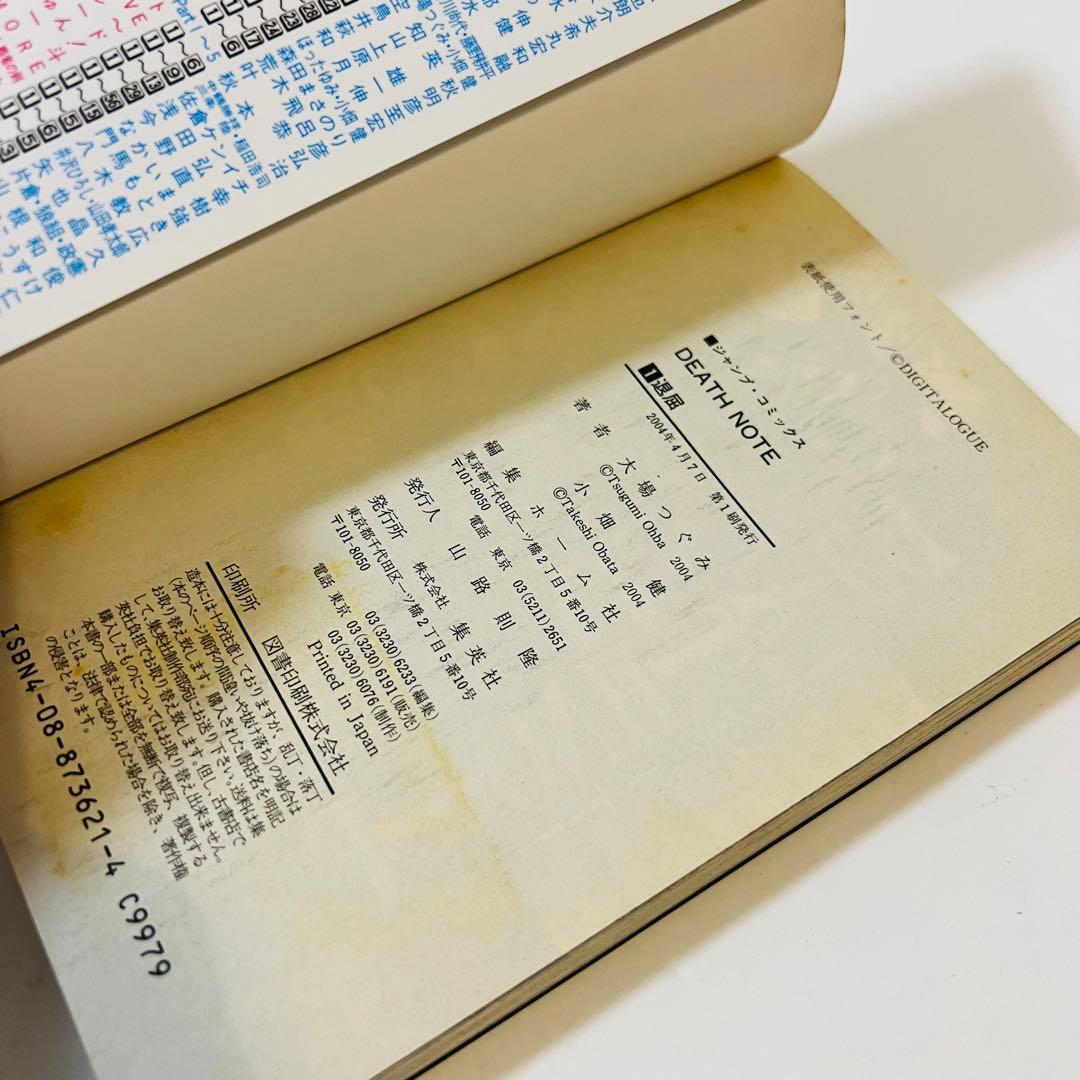 表紙使用フォント/©DIGITALOGUE
■ジャンプ・コミックス
DEATH NOTE
1退屈
2004年4月7日 第1刷発行
著者 大場つぐみ
©Tsugumi Ohba 2004
小畑健
©Takeshi Obata 2004
編集 ホーム社
東京都千代田区一ツ橋2丁目5番10号
〒101-8050 電話 東京 03(5211)2651
発行人 山路則隆
発行所 株式会社 集英社
東京都千代田区一ツ橋2丁目5番10号
〒101-8050
03(3230)6233(編集)
電話 東京 03(3230)6191(販売)
03(3230)6076(制作)
Printed in Japan
印刷所 図書印刷株式会社
造本には十分注意しておりますが、乱丁・落丁
(本のページ順序の間違いや抜け落ち)の場合は
お取り替え致します。購入された書店名を明記
して、集英社制作部宛にお送り下さい。送料は集
英社負担でお取り替え致します。但し、古書店で
購入したものについてはお取り替え出来ません。
本書の一部または全部を無断で複写、複製する
ことは、法律で認められた場合を除き、著作権
の侵害となります。
ISBN4-08-873621-4 C9979
ほったゆみ・小畑健
森田まさのり
荒木飛呂彦
秋本治
叶恭弘
三条陸・稲田浩司
佐倉ケンイチ
浅田弘幸
今野直樹
なかいま強
門馬もとき
八木教広
矢也晶久
井沢ひろし・山田孝太郎
片倉・狼組・政憲
山根和俊